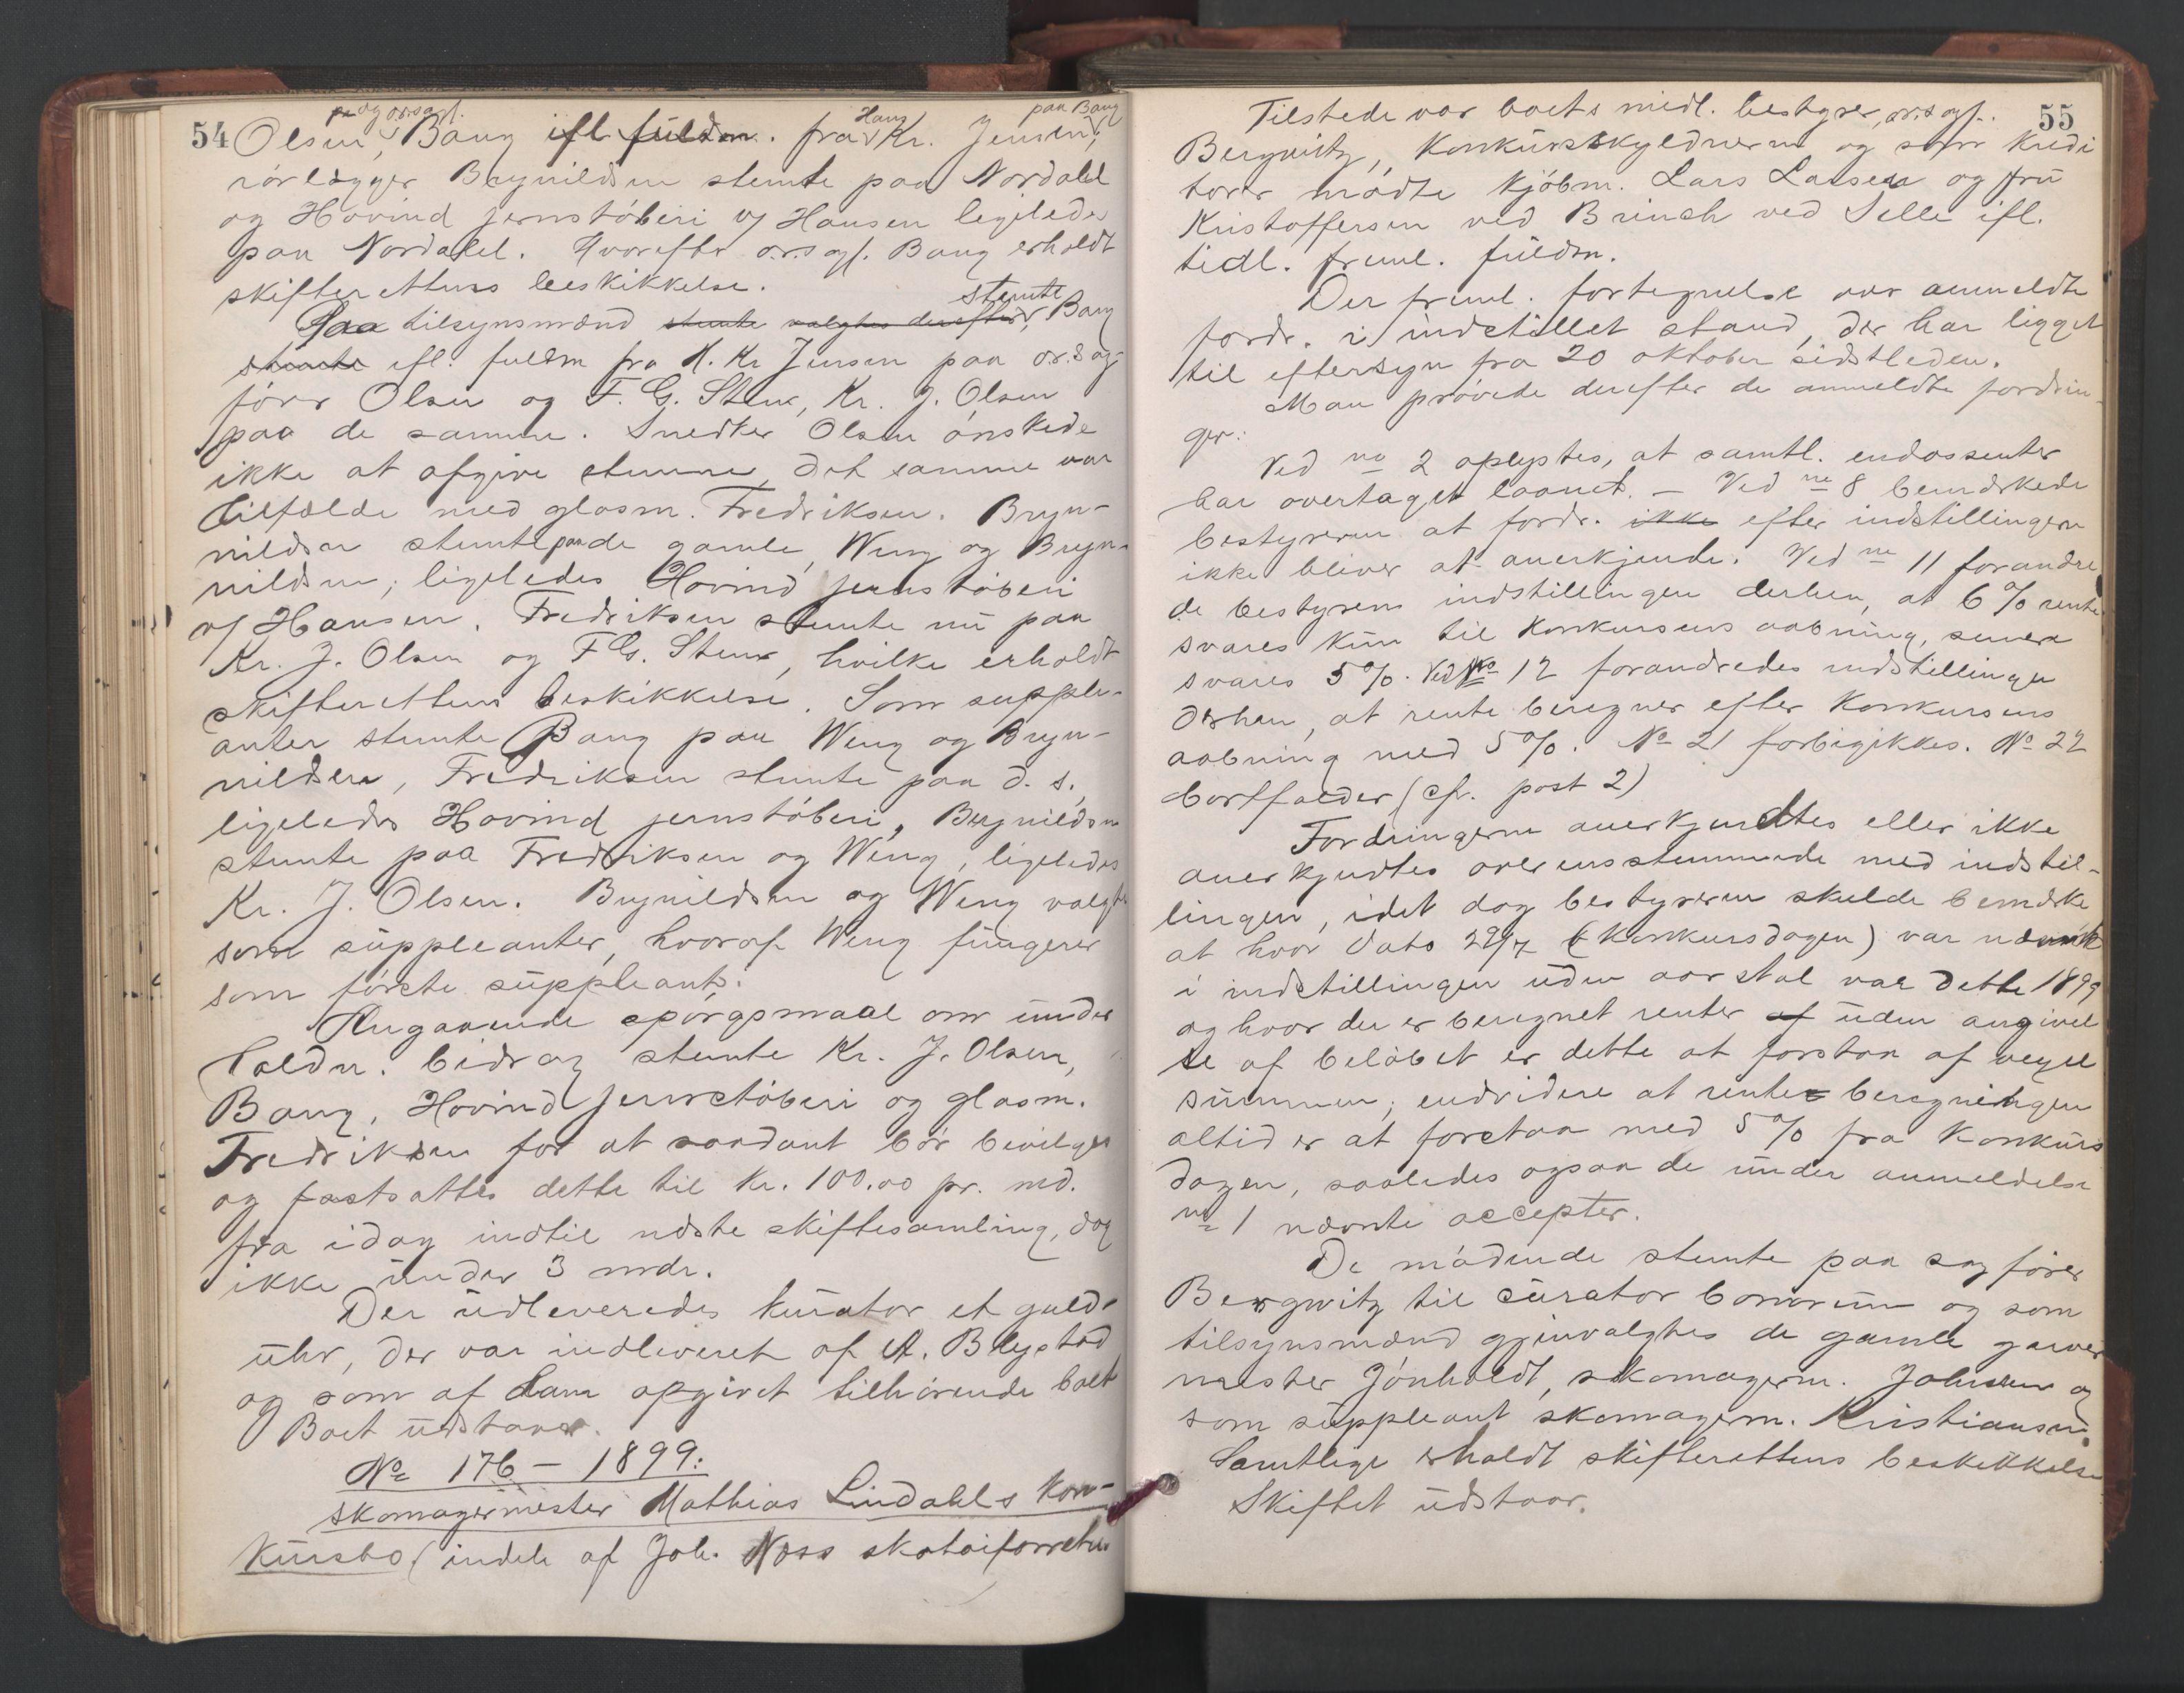 54
og o.r.sagf. Hans paa Bang
Olsen, Bang ifl fuldm. fra Kr. Jensen,
rørlægger Brynildsen stemte paa Nordahl
og Hovind jernstøberi v/ Hansen ligeledes
paa Nordahl. Hvorefter o.r.sagf. Bang erholdt
skifterettens beskikkelse.
Paa tilsynsmænd stemte valgtes derefter stemte Bang
stemte ifl. fuldm fra H. Kr Jensen paa o.r.sag-
fører Olsen og F. G. Stene, Kr. J. Olsen
paa de samme. Snedker Olsen ønskede
ikke at afgive stemme, det samme var
tilfælde med glasm. Fredriksen. Bryn-
nildsen stemte paa de gamle, Weng og Bryn-
nildsen; ligeledes Hovind jernstøberi
v/ Hansen. Fredriksen stemte nu paa
Kr. J. Olsen og F G. Stene, hvilke erholdt
skifterettens beskikkelse. Som supple-
anter stemte Bang paa Weng og Bryn-
nildsen, Fredriksen stemte paa d. s.,
ligeledes Hovind jernstøberi, Brynildsen
stemte paa Fredriksen og Weng, ligeledes
Kr. J. Olsen. Brynildsen og Weng valgte
som suppleanter, hvoraf Weng fungerer
som første suppleant.
Angaaende spørgsmaal om under
holdn. bidrag stemte Kr. J. Olsen,
Bang, Hovind Jernstøberi og glasm.
Fredriksen for at saadant bør bevilges
og fastsattes dette til Kr. 100.00 pr. md.
fra idag indtil næste skiftesamling, dog
ikke under 3 mdr.
Der udleveredes kurator et guld-
uhr, der var indleveret af A. Blystad
og som af ham opgivet tilhørende boet
Boet udstaar.
No 176 – 1899:
skomagermester Mathias Lindahls kon-
kursbo (indeh af Joh. Næss skotøiforretn
55
Tilstede var boets midl. bestyrer, o.r.sagf.
Bergwitz, Konkursskyldneren og som kredi
torer mødte kjøbm. Lars Larsen og fru
Kristoffersen ved Brinch ved Selle ifl.
tidl. freml. fuldm.
Der freml. fortegnelse over anmeldte
fordr. i indstillet stand, der har ligget
til eftersyn fra 20 oktober sidstleden.
Man prøvede derefter de anmeldte fordrin-
ger:
Ved no 2 oplystes, at samtl. endossenter
har overtaget laanet. – Ved no 8 bemærkede
bestyreren at fordr. ikke efter indstillingen
ikke bliver at anerkjende. Ved no 11 forandre
de bestyrens indstillingen derhen, at 6 % rente
svares kun til konkursens aabning, senere
svares 5 %. Ved No 12 forandredes indstillingen
derhen, at rente beregner efter Konkursens
aabning med 5 %. No 21 forbigikkes. No 22
bortfalder (cfr. post 2)
Fordringerne anerkjendtes eller ikke
anerkjendtes overensstemmende med indstil-
lingen, idet dog bestyreren skulde bemærke
at hvor dato 29/7 (Konkursdagen) var nævnt
i indstillingen uden aarstal var dette 1899
og hvor der er beregnet renter af uden angivel
se af beløbet er dette at forstaa af vexel
summen; endvidere at renteberegningen
altid er at foretaa med 5 % fra Konkurs
dagen, saaledes ogsaa de under anmeldelse
no 1 nævnte accepter.
De mødende stemte paa sagfører
Bergwitz til curator bonorum og som
tilsynsmænd gjenvalgtes de gamle garver
mester Jónholdt, skomagerm. Johnsen og
som suppleant skomagerm. Kristiansen.
Samtlige erholdt skifterettens beskikkelse
Skiftet udstaar.